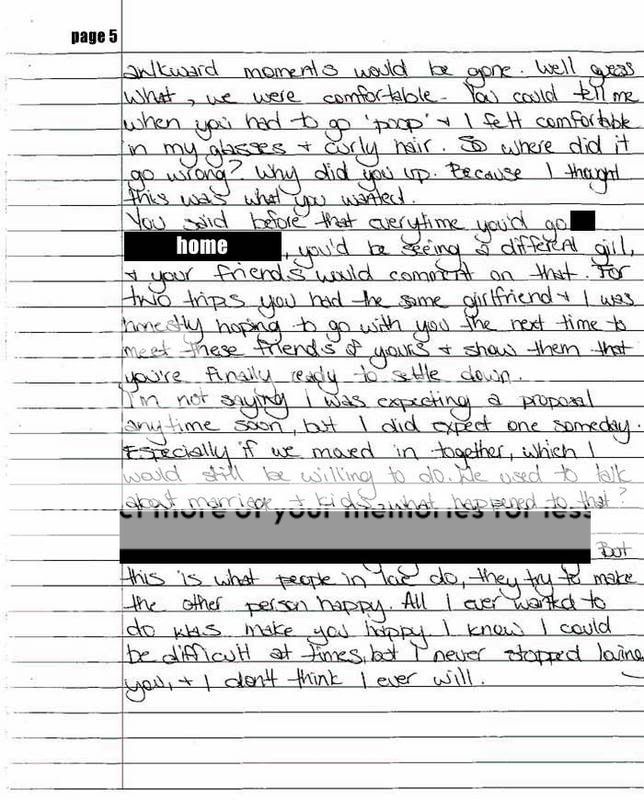 page 5
awkward moments would be gone. Well guess
what, we were comfortable. You could tell me
when you had to go 'poop' & I felt comfortable
in my glasses & curly hair. So where did it
go wrong? Why did you up. Because I thought
this was what you wanted.
You said before that everytime you'd go
home, you'd be seeing a different girl,
& your friends would comment on that. For
two trips you had the same girlfriend & I was
honestly hoping to go with you the next time to
meet these friends of yours & show them that
you're finally ready to settle down.
I'm not saying I was expecting a proposal
anytime soon, but I did expect one someday.
Especially if we moved in together, which I
would still be willing to do. We used to talk
about marriage & kids, what happened to that?
more of your memories for less
But
this is what people in love do, they try to make
the other person happy. All I ever wanted to
do was make you happy I know I could
be difficult at times, but I never stopped loving
you, & I don't think I ever will.